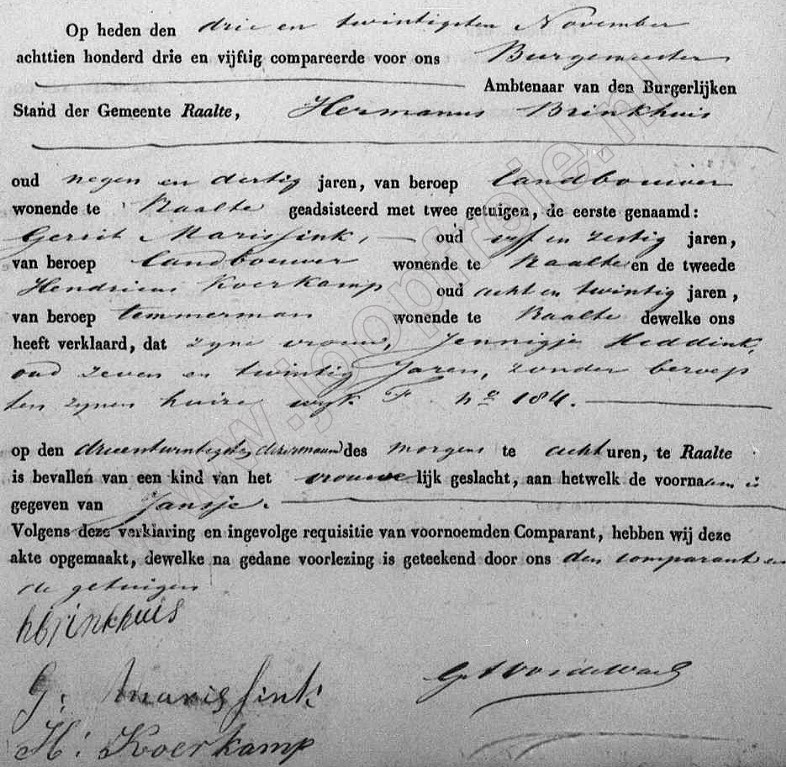 Op heden den drie en twintigsten November
achttien honderd drie en vijftig compareerde voor ons Burgemeester
Ambtenaar van den Burgerlijken
Stand der Gemeente Raalte, Hermanus Brinkhuis
oud negen en dertig jaren, van beroep landbouwer
wonende te Raalte geadsisteerd met twee getuigen, de eerste genaamd:
Gerrit Marissink, oud vyf en zestig jaren,
van beroep landbouwer wonende te Raalte en de tweede
Hendricus Koerkamp oud acht en twintig jaren,
van beroep temmerman wonende te Raalte dewelke ons
heeft verklaard, dat zyne vrouw, Jennigje Heddink,
oud zeven en twintig Jaren, zonder beroep
ten zynen huize wyk F. no 184.
op den drieentwintigsten dezer maand des morgens te acht uren, te Raalte
is bevallen van een kind van het vrouwelijk geslacht, aan hetwelk de voornaam is
gegeven van Jansje.
Volgens deze verklaring en ingevolge requisitie van voornoemden Comparant, hebben wij deze
akte opgemaakt, dewelke na gedane voorlezing is geteekend door ons den comparant en
de getuigen
hbrinkhuis
G: Marissink
H: Koerkamp
www.jooptroje.nl